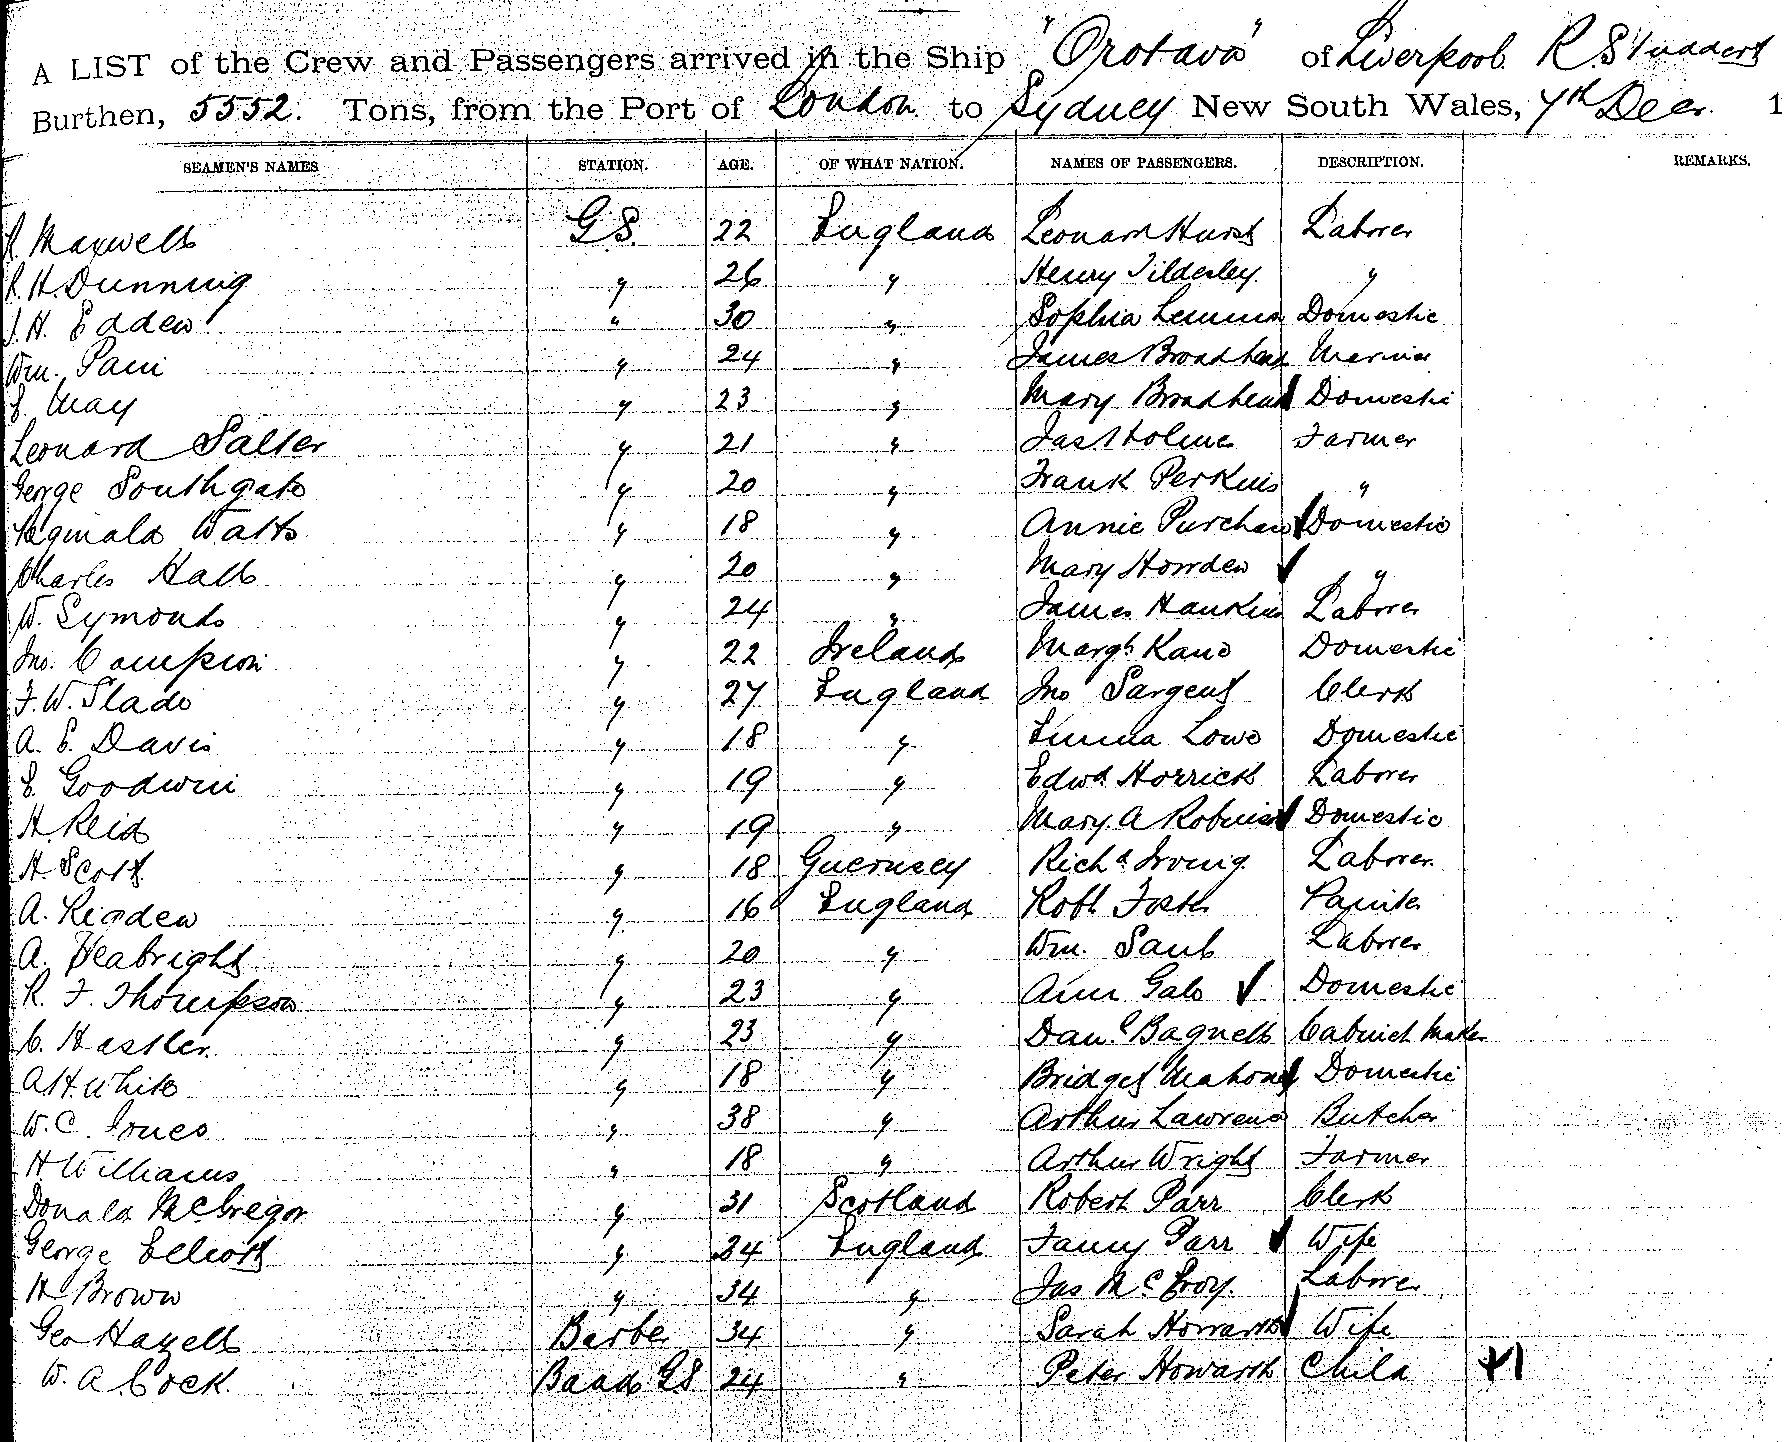 A LIST of the Crew and Passengers arrived in the Ship "Orotava" of Liverpool R Studdert
Burthen, 5552. Tons, from the Port of London to Sydney New South Wales, 7th Decr. 1
SEAMEN'S NAMES STATION. AGE. OF WHAT NATION. NAMES OF PASSENGERS. DESCRIPTION. REMARKS.
Maxwell G.S. 22 England Leonard Hurst Laborer
H. Dunning " 26 " Henry Tilderley "
J. H. Edden " 30 " Sophia Domestic
Wm. Pain " 24 " James Broadhead Marine
E. May " 23 " Mary Broadhead Domestic
Leonard Salter " 21 " Jas Holme Farmer
George Southgate " 20 " Frank Perkins "
Reginald Watts " 18 " Annie Purchase Domestic
Charles Hall " 20 " Mary Howden "
W. Symonds " 24 " James Hankins Laborer
Jno. Campion " 22 Ireland Margt Kane Domestic
F. W. Slade " 27 England Jno Sargent Clerk
A. E. Davis " 18 " Emma Lowe Domestic
E. Goodwin " 19 " Edwd Horrick Laborer
H. Reid " 19 " Mary A Robinson Domestic
H. Scott " 18 Guernsey Richd Irving Laborer
A. " 16 England Robt Foster Painter
A. Heabright " 20 " Wm. Saul Laborer
R. F. Thompson " 23 " Ann Gale Domestic
C. Hastler " 23 " Danl Bagnell Cabinet Maker
A H White " 18 " Bridget Mahoney Domestic
W. C. Jones " 38 " Arthur Lawrence Butcher
H Williams " 18 " Arthur Wright Farmer
Donald McGregor " 31 Scotland Robert Parr Clerk
George Elliott " 34 England Fanny Parr Wife
H Brown " 34 " Jas McEvoy Laborer
Geo Hazell Barber 34 " Sarah Howarth Wife
W. A Cock Bands GS 24 " Peter Howarth Child